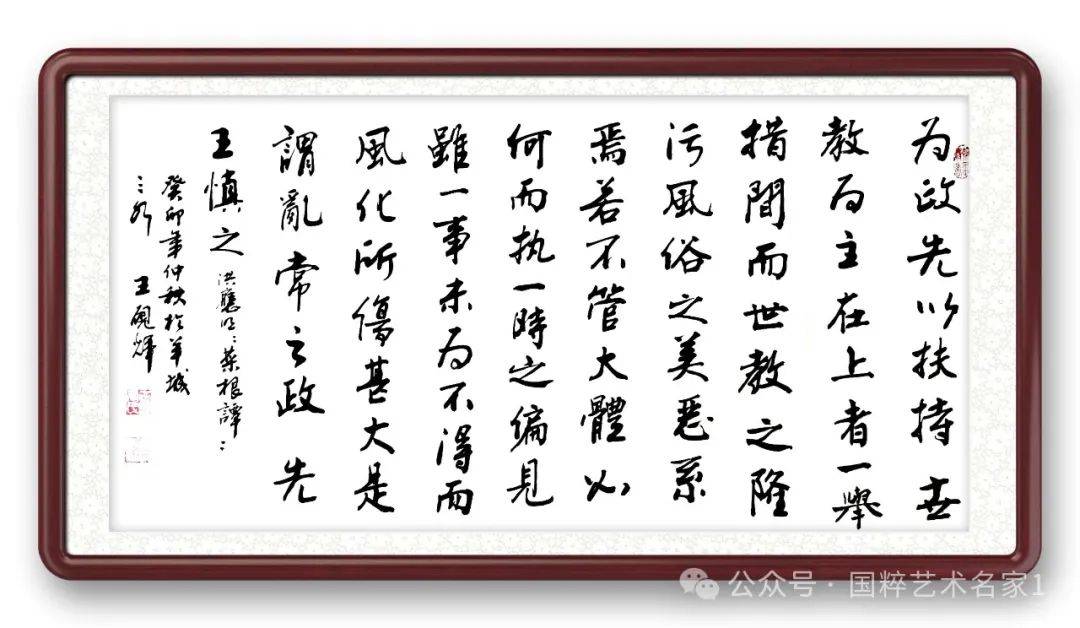 为政先以扶持世
教为主在上者一舉
措間而世教之隆
污風俗之美惡系
焉若不管大體如
何而执一時之偏見
雖一事未为不得而
風化所傷甚大是
謂亂常之政先
王慎之 洪應明：菜根譚：
癸卯年仲秋於羊城
三水 王硯輝
公众号 · 国粹艺术名家1